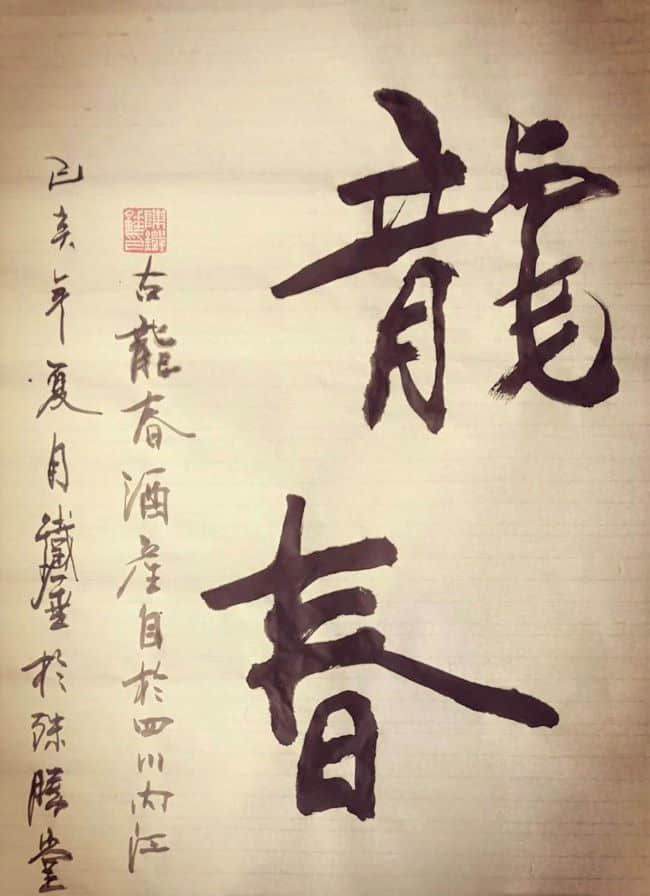 龍春
古龍春酒產自於四川內江
己亥年夏月鐵崖於殊勝堂